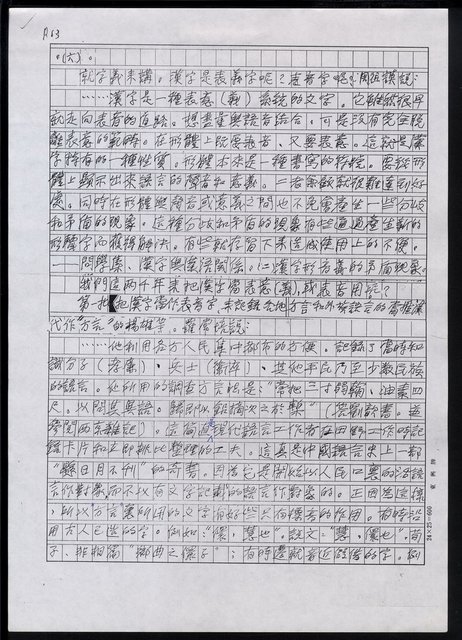 A63
(六)。
就字義來講。漢字是表義字呢?表音字呢?周祖謨說:
……漢字是一種表意(義)系統的文字。它雖然很早
就走向表音的道路。想盡量與語音結合,可是沒有完全脫
離表意的範疇。在形體上既要表音、又要表意。這就是漢
字特有的一種性質。形體本來是一種書寫的符號。要從形
體上顯示出來語言的聲音和意義。二者兼顧就很難達到好
處。同時在形體與聲音或意義之間也不免要產生一些分歧
和矛盾的現象。這種分歧和矛盾的現象有些通過產生新的
形聲字而獲得解決。有些就存留下來造成使用上的不便。
——問學集、漢字與漢語關係。(二漢字形音義的矛盾現象。
我們這兩千年來把漢字當表意(義)或表音用呢?
第一把漢字當作表音字、來記錄各地方言和外族語言的當推漢
代作"方言"的楊雄等。羅常培說:
……他利用各方人民集中都市的方便。記錄了當時知
識分子(孝廉)、兵士(衛卒)、其他平民乃至少數民族
的語言。他所用的調查方法是:"常把三寸弱翰、油素四
尺,以問其異語。歸即以鉛摘次之於槧"(揚劉歆書。
卡片和立即排比整理的工夫。這真是中國語言史上一部
"縣日月不刊"的奇書。因為它是開始以人民口裏的活語
言作對象而不以有文字記載的語言作對象的。正因為這樣
、所以方言裏所用的文字有好些只有標音的作用。有時沿
用古人已造的字。例如:"儇,慧也"。說文:"慧,儇也"。荀
子、非相篇"鄉曲之儇子";有時遷就音近的假借的字。例
24×25=600